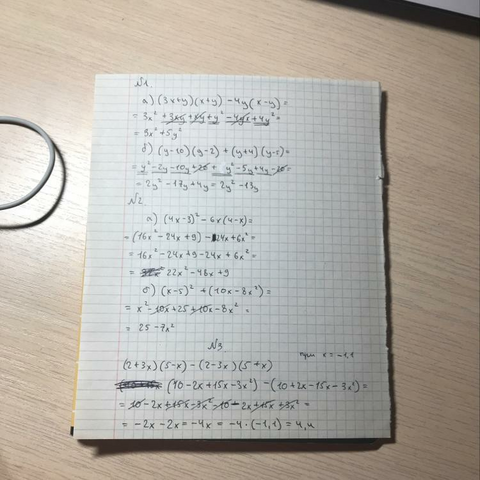 N1.
а) (3x+y)(x+y) - 4y(x-y)=
= 3x² + 3xy + xy + y² - 4yx + 4y² =
= 3x² + 5y²
б) (y-10)(y-2) + (y+4)(y-5)=
= y² - 2y - 10y + 20 + y² - 5y + 4y - 20 =
= 2y² - 17y + 4y = 2y² - 13y
N2.
а) (4x-3)² - 6x(4-x)=
= (16x² - 24x + 9) - 24x + 6x² =
= 16x² - 24x + 9 - 24x + 6x² =
= 22x² - 48x + 9
б) (x-5)² + (10x - 8x²)=
= x² - 10x + 25 + 10x - 8x² =
= 25 - 7x²
N3
при x = -1,1
(2+3x)(5-x) - (2-3x)(5+x)
(10 - 2x + 15x - 3x²) - (10 + 2x - 15x - 3x²) =
= 10 - 2x + 15x - 3x² - 10 - 2x + 15x + 3x² =
= -2x - 2x = -4x = -4·(-1,1) = 4,4